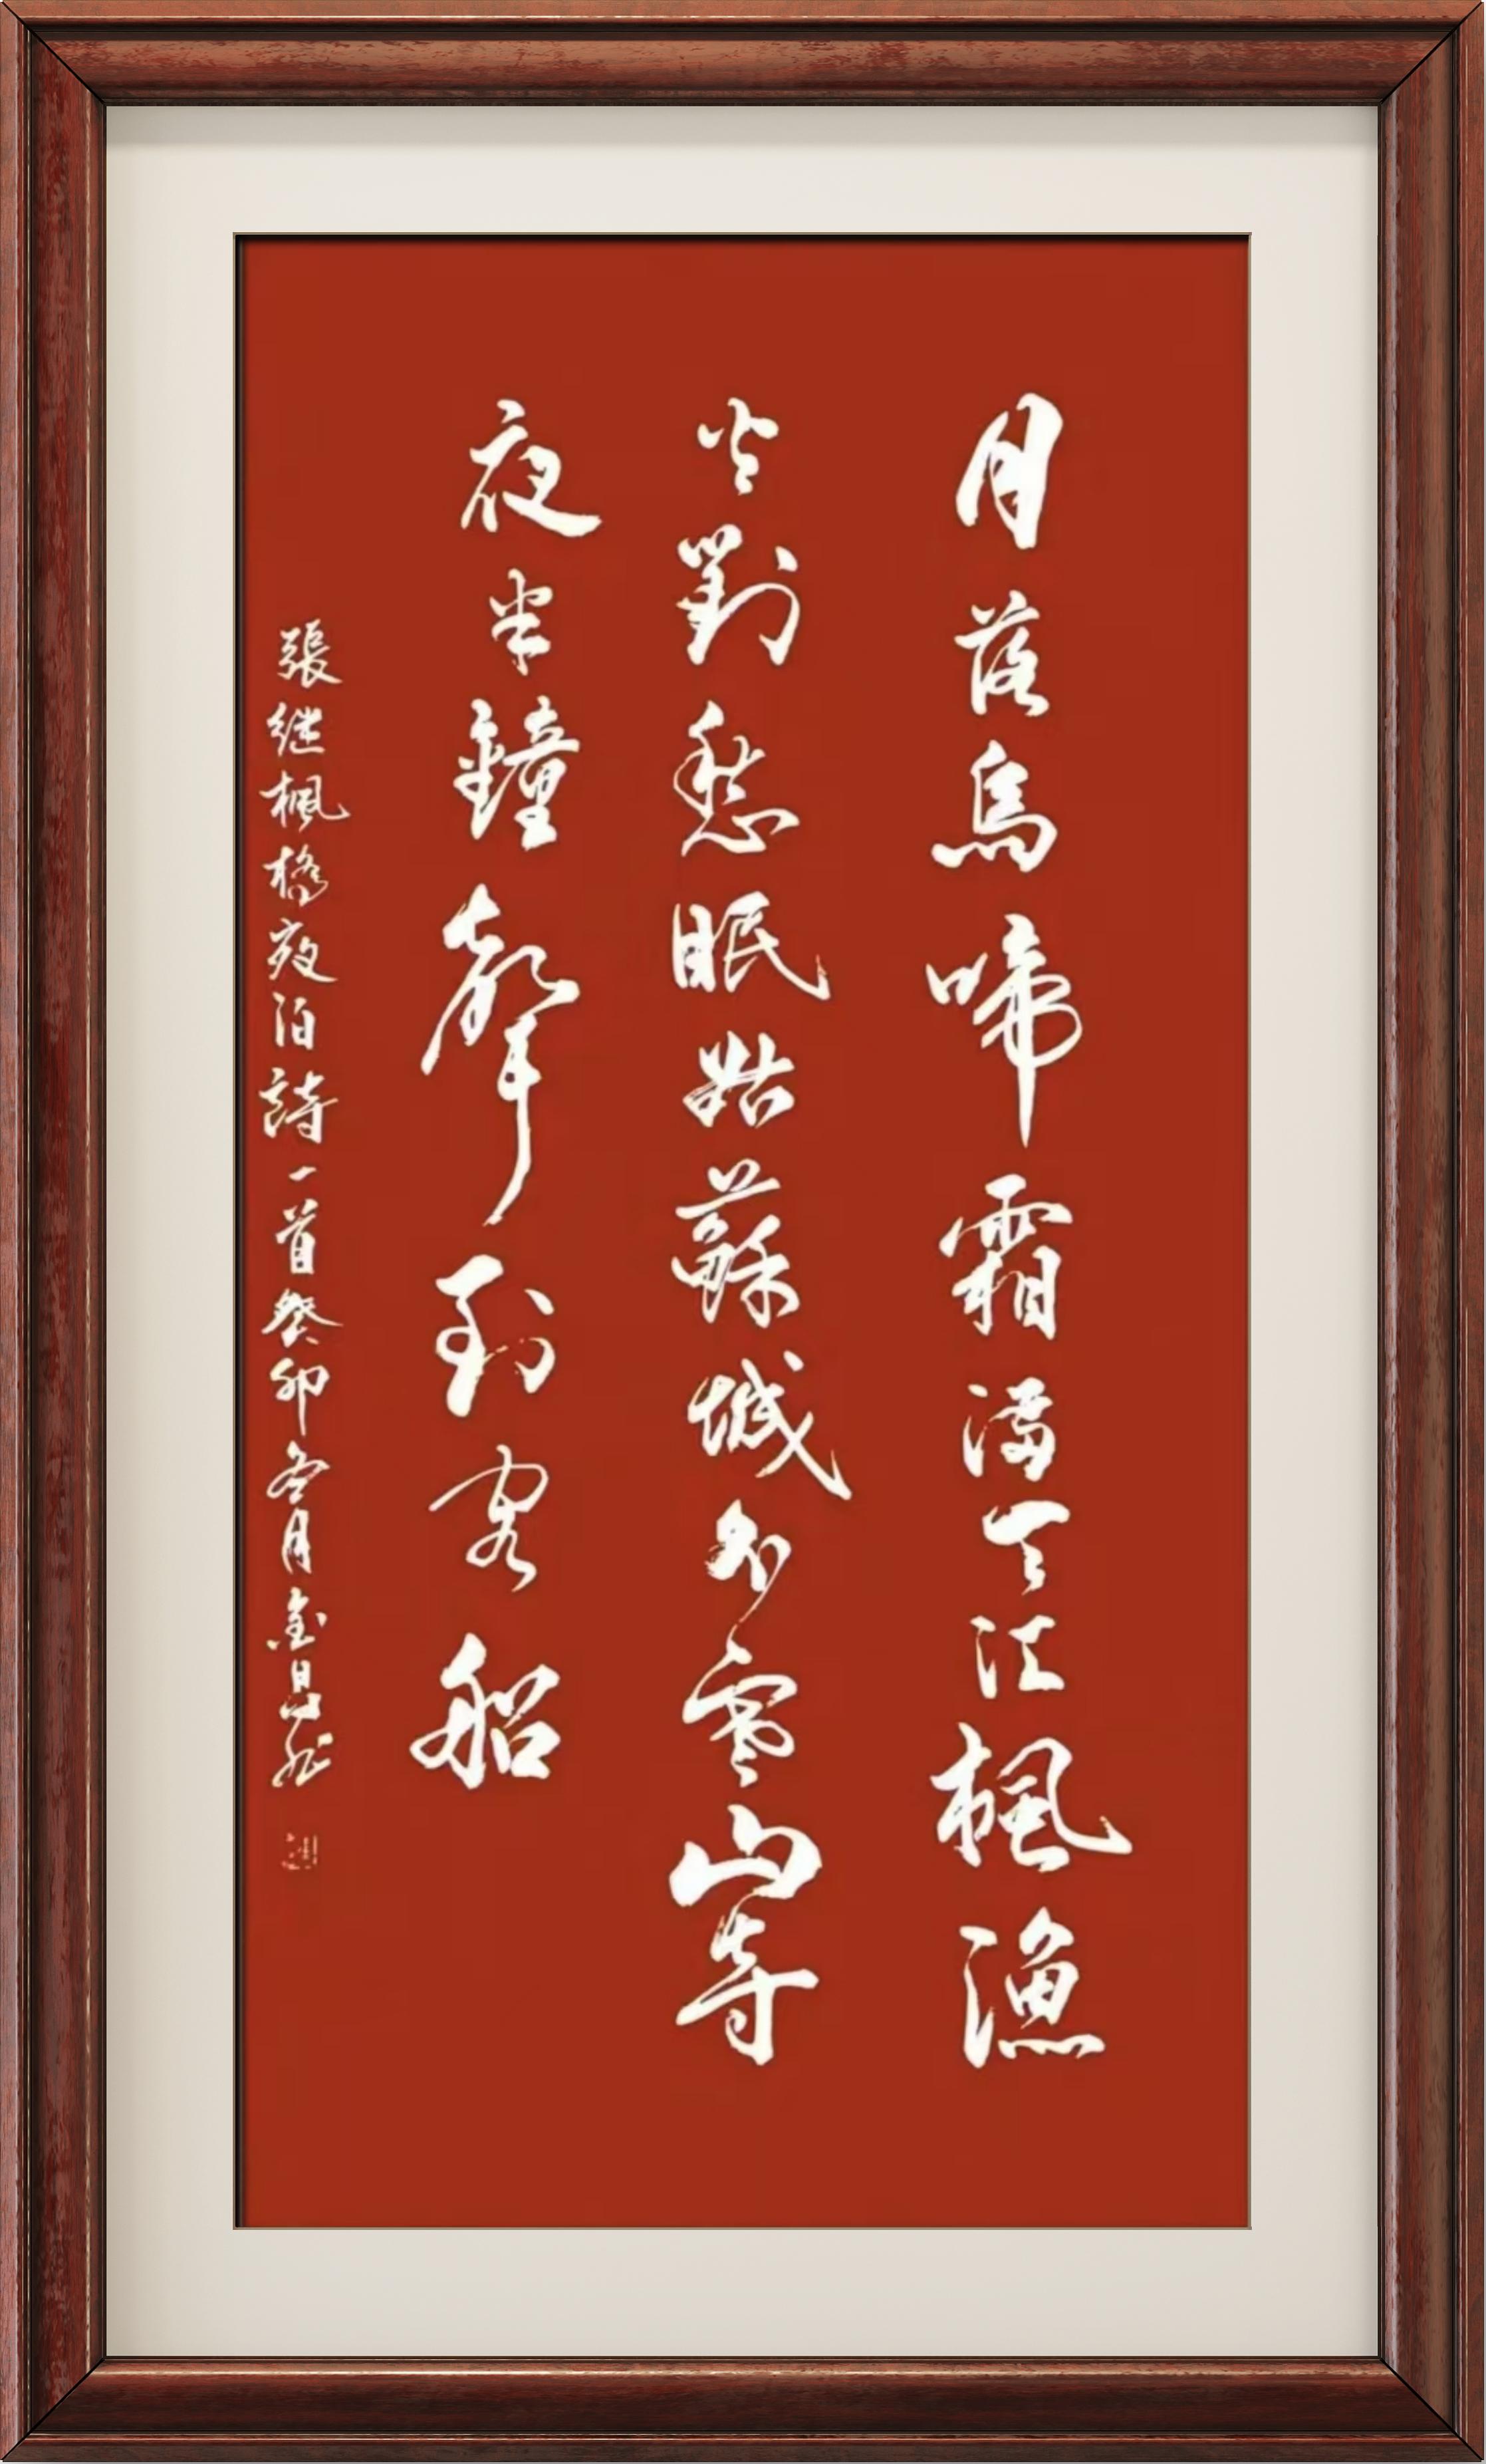 月落烏啼霜滿天江楓漁
火對愁眠姑蘇城外寒山寺
夜半鐘聲到客船
張继楓橋夜泊詩一首癸卯冬月金昌